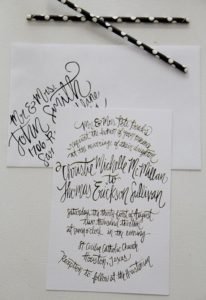 Mr. & Mrs.
John Smith
Mr. & Mrs.
request the honor of your presence
at the marriage of their daughter
Christie Michelle McMillan
to
Thomas Erickson Sullivan
Saturday, the thirty first of August
two thousand thirteen
at o'clock in the evening
St. Cecilia Catholic Church
Houston, Texas
Reception to follow at the